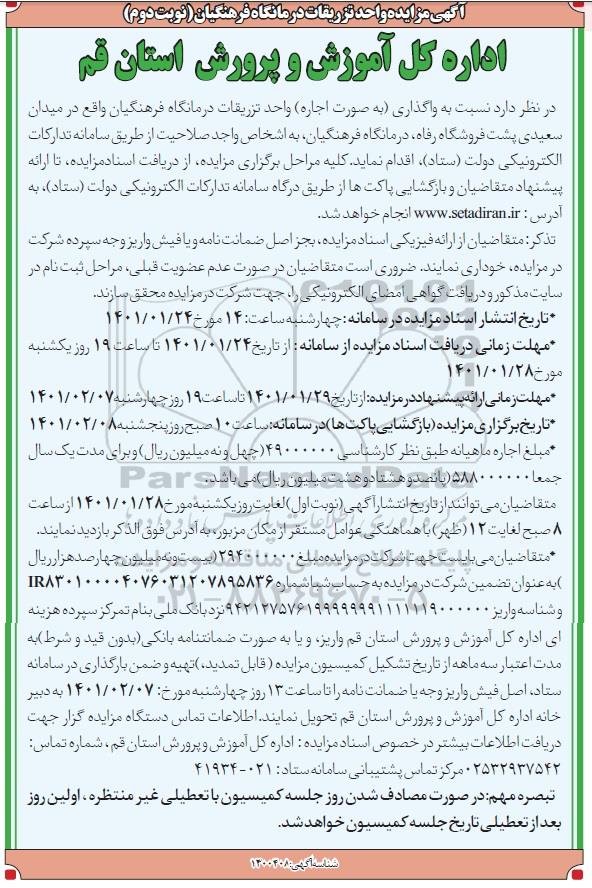 آگهی مزایده واحد تزریقات درمانگاه فرهنگیان (نوبت دوم)
اداره کل آموزش و پرورش استان قم
در نظر دارد نسبت به واگذاری (به صورت اجاره) واحد تزریقات درمانگاه فرهنگیان واقع در میدان
سعیدی پشت فروشگاه رفاه، درمانگاه فرهنگیان، به اشخاص واجد صلاحیت از طریق سامانه تدارکات
الکترونیکی دولت (ستاد)، اقدام نماید.کلیه مراحل برگزاری مزایده، از دریافت اسناد مزایده، تا ارائه
پیشنهاد متقاضیان و بازگشایی پاکت ها از طریق درگاه سامانه تدارکات الکترونیکی دولت (ستاد)، به
آدرس : www.setadiran.ir انجام خواهد شد.
تذکر: متقاضیان از ارائه فیزیکی اسناد مزایده، بجز اصل ضمانت نامه و یا فیش واریز وجه سپرده شرکت
در مزایده، خودداری نمایند. ضروری است متقاضیان در صورت عدم عضویت قبلی، مراحل ثبت نام در
سایت مذکور و دریافت گواهی امضای الکترونیکی را، جهت شرکت در مزایده محقق سازند.
*تاریخ انتشار اسناد مزایده در سامانه: چهارشنبه ساعت: ۱۴ مورخ ۱۴۰۱/۰۱/۲۴
*مهلت زمانی دریافت اسناد مزایده از سامانه : از تاریخ ۱۴۰۱/۰۱/۲۴ تا ساعت ۱۹ روز یکشنبه
مورخ ۱۴۰۱/۰۱/۲۸
*مهلت زمانی ارائه پیشنهاد در مزایده: از تاریخ ۱۴۰۱/۰۱/۲۹ تا ساعت ۱۹ روز چهارشنبه ۱۴۰۱/۰۲/۰۷
*تاریخ برگزاری مزایده (بازگشایی پاکت ها) در سامانه: ساعت ۱۰ صبح روز پنجشنبه ۱۴۰۱/۰۲/۰۸
*مبلغ اجاره ماهیانه طبق نظر کارشناسی ۴۹۰۰۰۰۰۰ (چهل و نه میلیون ریال) و برای مدت یک سال
جمعا ۵۸۸۰۰۰۰۰۰ (پانصد و هشتاد و هشت میلیون ریال) می باشد.
متقاضیان می توانند از تاریخ انتشار آگهی (نوبت اول) لغایت روز یکشنبه مورخ ۱۴۰۱/۰۱/۲۸ از ساعت
۸ صبح لغایت ۱۲ (ظهر) با هماهنگی عوامل مستقر از مکان مزبور، به آدرس فوق الذکر بازدید نمایند.
*متقاضیان می بایست جهت شرکت در مزایده مبلغ ۲۹۴۰۰۰۰۰۰ (بیست و نه میلیون چهارصد هزار ریال
) به عنوان تضمین شرکت در مزایده به حساب شبا شماره IR۸۳۰۱۰۰۰۰۴۰۷۶۰۳۱۲۰۷۸۹۵۸۳۶
و شناسه واریز نزد بانک ملی بنام تمرکز سپرده هزینه
ای اداره کل آموزش و پرورش استان قم واریز، و یا به صورت ضمانتنامه بانکی(بدون قید و شرط)به
مدت اعتبار سه ماهه از تاریخ تشکیل کمیسیون مزایده ( قابل تمدید،) تهیه و ضمن بارگذاری در سامانه
ستاد، اصل فیش واریز وجه یا ضمانت نامه را تا ساعت ۱۳ روز چهارشنبه مورخ: ۱۴۰۱/۰۲/۰۷ به دبیر
خانه اداره کل آموزش و پرورش استان قم تحویل نمایند.اطلاعات تماس دستگاه مزایده گزار جهت
دریافت اطلاعات بیشتر در خصوص اسناد مزایده : اداره کل آموزش و پرورش استان قم ، شماره تماس:
۰۲۵۳۲۹۳۷۵۴۲ مرکز تماس پشتیبانی سامانه ستاد : ۰۲۱-۴۱۹۳۴
تبصره مهم: در صورت مصادف شدن روز جلسه کمیسیون با تعطیلی غیر منتظره ، اولین روز
بعد از تعطیلی تاریخ جلسه کمیسیون خواهد شد.
شناسه آگهی: ۱۳۰۰۴۰۸
ParsNamadData
۰۲۱-۸۸۳۴۹۶۷۰-۵